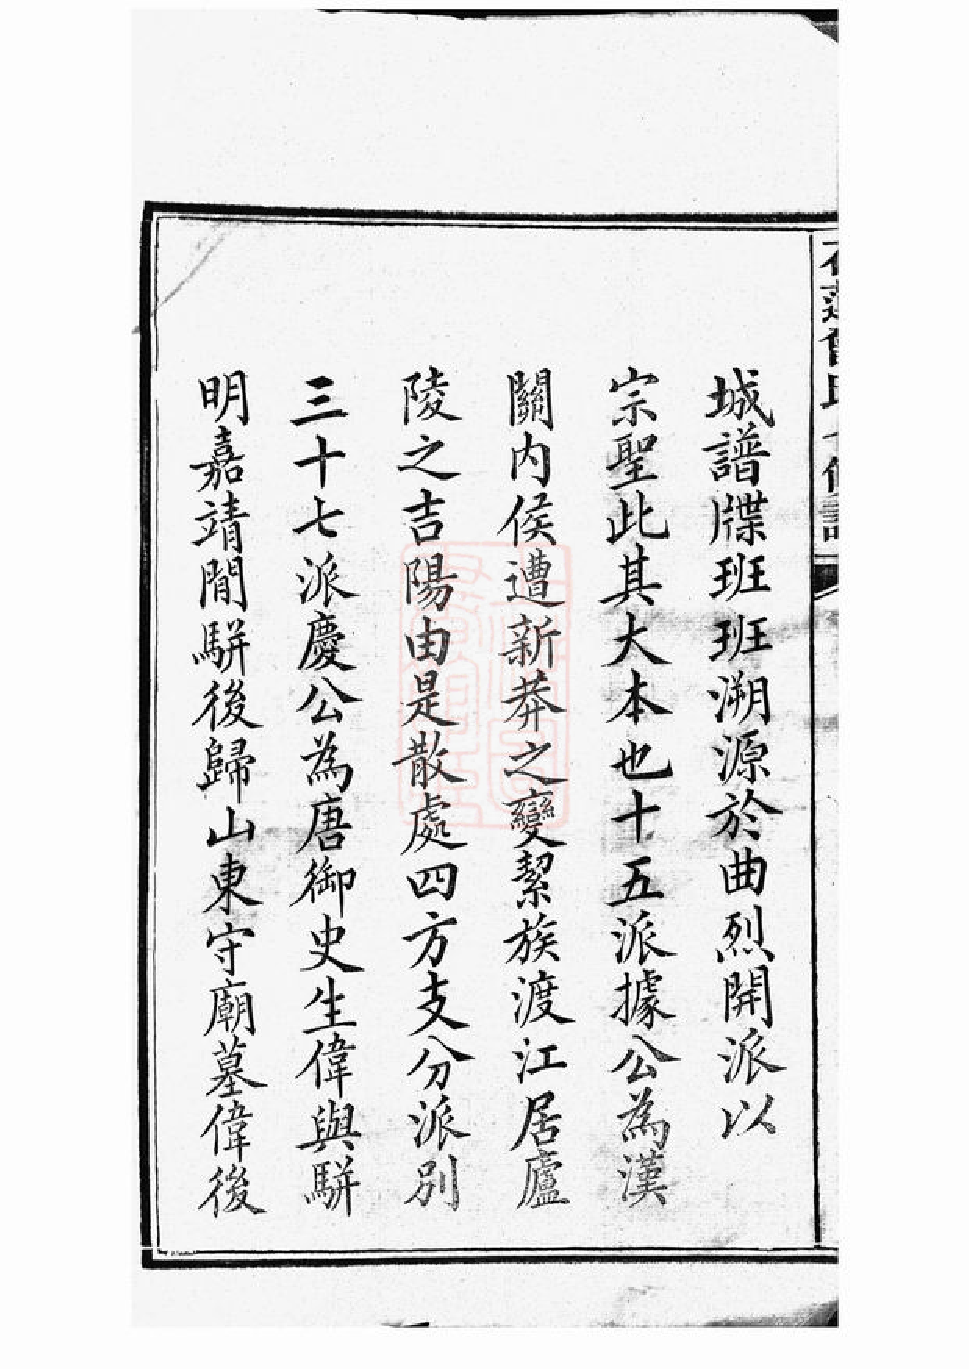 城譜牒班班溯源於曲烈開派以
宗聖此其大本也十五派據公為漢
關內侯遭新莽之變絜族渡江居廬
陵之吉陽由是散處四方支分派別
三十七派慶公為唐御史生偉與駢
明嘉靖間駢後歸山東守廟墓偉後